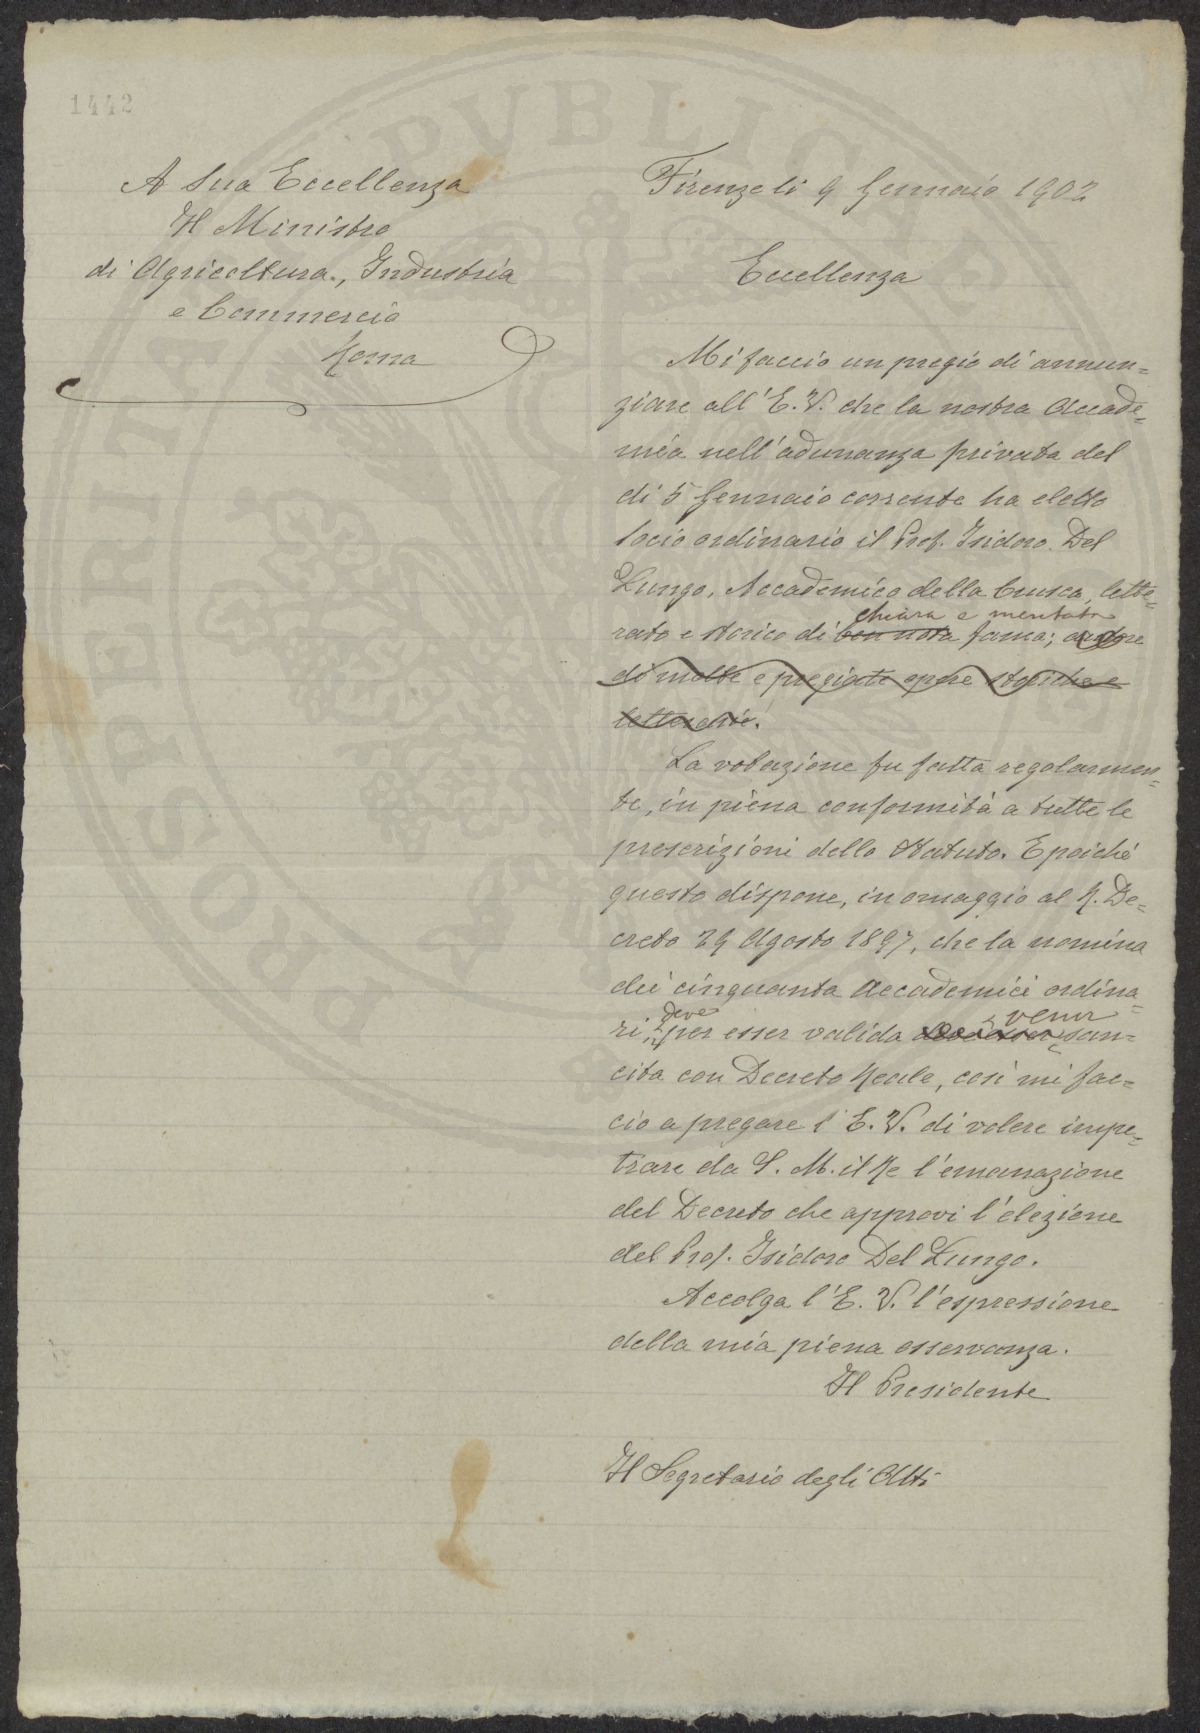 1442
A Sua Eccellenza
Il Ministro
di Agricoltura, Industria
e Commercio
Roma
Firenze li 9 Gennaio 1902
Eccellenza
Mi faccio un pregio di annun=
ziare all'E. V. che la nostra Accade=
mia nell'adunanza privata del
di 5 Gennaio corrente ha eletto
Socio ordinario il Prof. Isidoro Del
Lungo, Accademico della Crusca, lette=
chiara e meritata
rato e storico di ben nota fama; autore
di molte e pregiate opere storiche e
letterarie.
La votazione fu fatta regolarmen=
te, in piena conformità a tutte le
prescrizioni dello Statuto. E poichè
questo dispone, in omaggio al R. De=
creto 29 Agosto 1897, che la nomina
dei cinquanta Accademici ordina=
deve venir
ri, per esser valida deve esser san=
cita con Decreto Reale, così mi fac=
cio a pregare l'E. V. di volere impe=
trare da S. M. il Re l'emanazione
del Decreto che approvi l'elezione
del Prof. Isidoro Del Lungo.
Accolga l'E. V. l'espressione
della mia piena osservanza.
Il Presidente
Il Segretario degli Atti